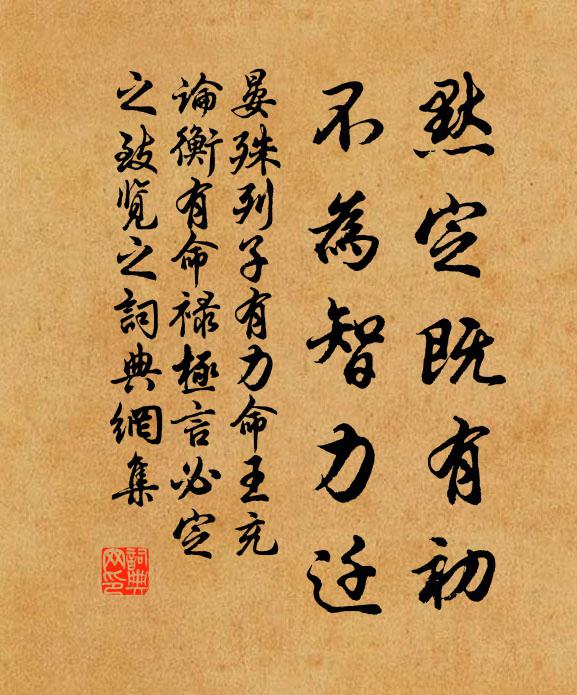 默定既有初
不為智力迁
晏殊列子有力命王充
论衡有命禄極言必定
之致览之詞典網集
詞典网印